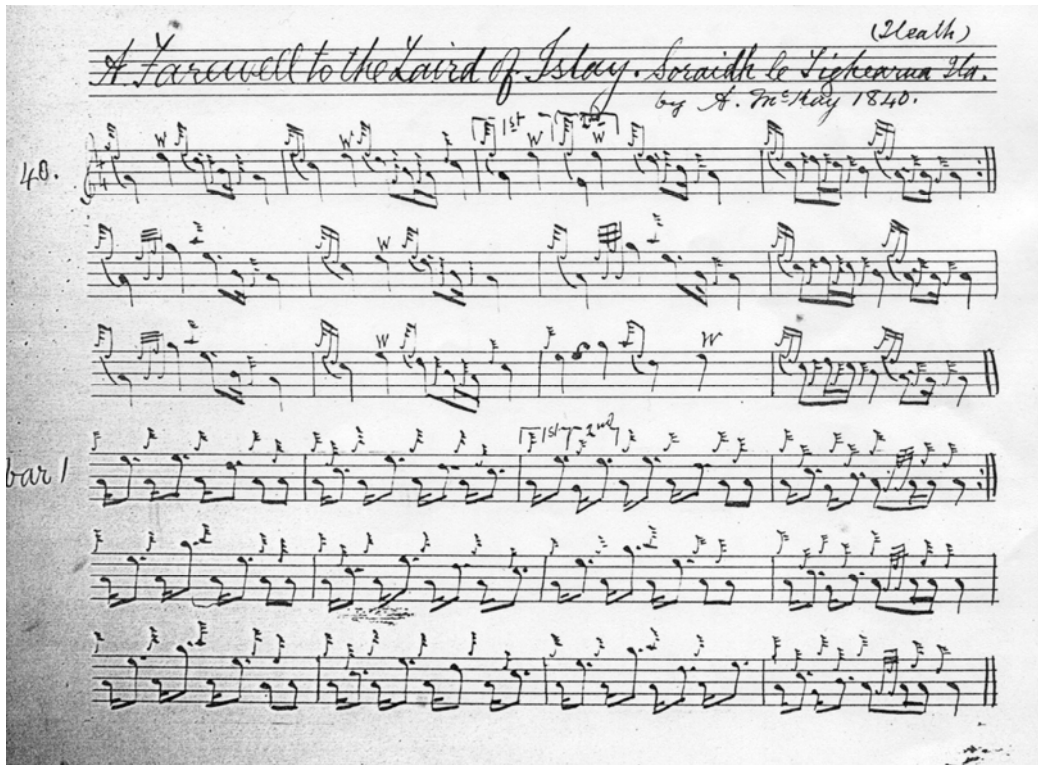 (Heath)
A Farewell to the Laird of Islay. Soraidh le Tighearna Ila.
by A. McKay 1840.
1st 2nd
W W W W
40.
W
W W
1st 2nd
bar 1